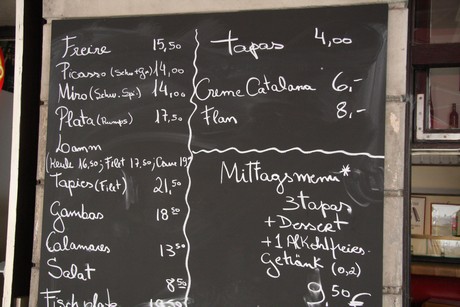 Freire 15,50
Picasso (Schw+Gf) 14,00
Miro (Schw. Spi) 14,00
Plata (Rumps) 17,50
Lamm
(Keule 16,50; Filet 17,50; Carre 19
Tapies (Filet) 21,50
Gambas 18 50
Calamares 13 50
Salat 8 50
Fischplate
Tapas 4,00
Creme Catalana 6,-
Flan 8,-
Mittagsmenu*
3 tapas
+ Dessert
+ 1 Alkoholfreies.
Getränk (0,2)
9,50 €